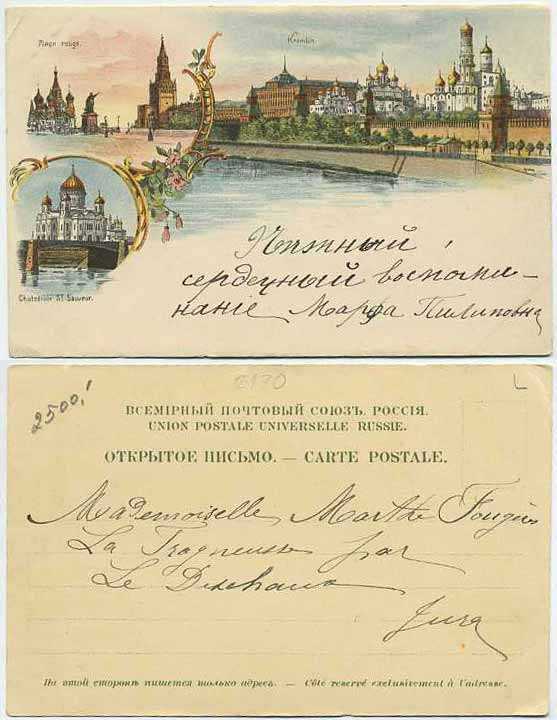 Place rouge.
Kremlin.
Cathédrale St. Sauveur.
сердечный воспоми-
нанiе Марфа Пилиповна
2500,!
ВСЕМIРНЫЙ ПОЧТОВЫЙ СОЮЗЪ. РОССIЯ.
UNION POSTALE UNIVERSELLE RUSSIE.
ОТКРЫТОЕ ПИСЬМО. — CARTE POSTALE.
Mademoiselle Marthe
La par
Le Deschaux
Jura
На этой сторонѣ пишется только адресъ. — Côté réservé exclusivement à l'adresse.